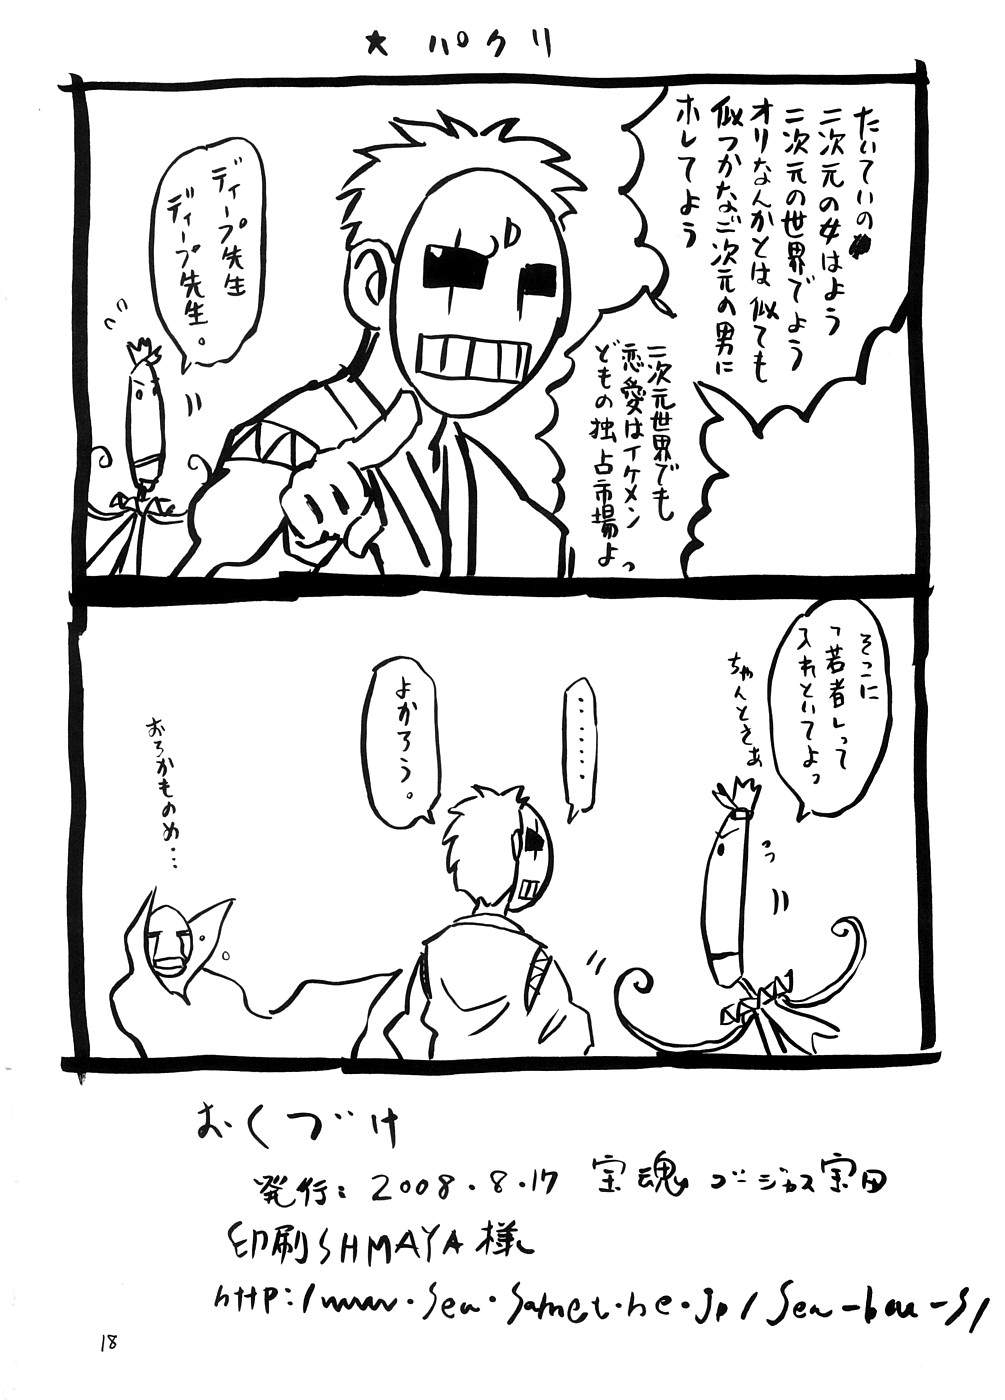 ★ パクリ
たいていの
二次元の女はよう
二次元の世界でよう
オリなんかとは似ても
似つかなご次元の男に
ホレてよう
二次元世界でも
恋愛はイケメン
どもの独占市場よっ
ディープ先生
ディープ先生。
そこに
「若者」って
入れといてよっ
ちゃんとさぁ
‥‥‥
よかろう。
おろかものめ…
おくづけ
発行：2008.8.17 宝魂 ゴージャス宝田
印刷SHIMAYA様
18